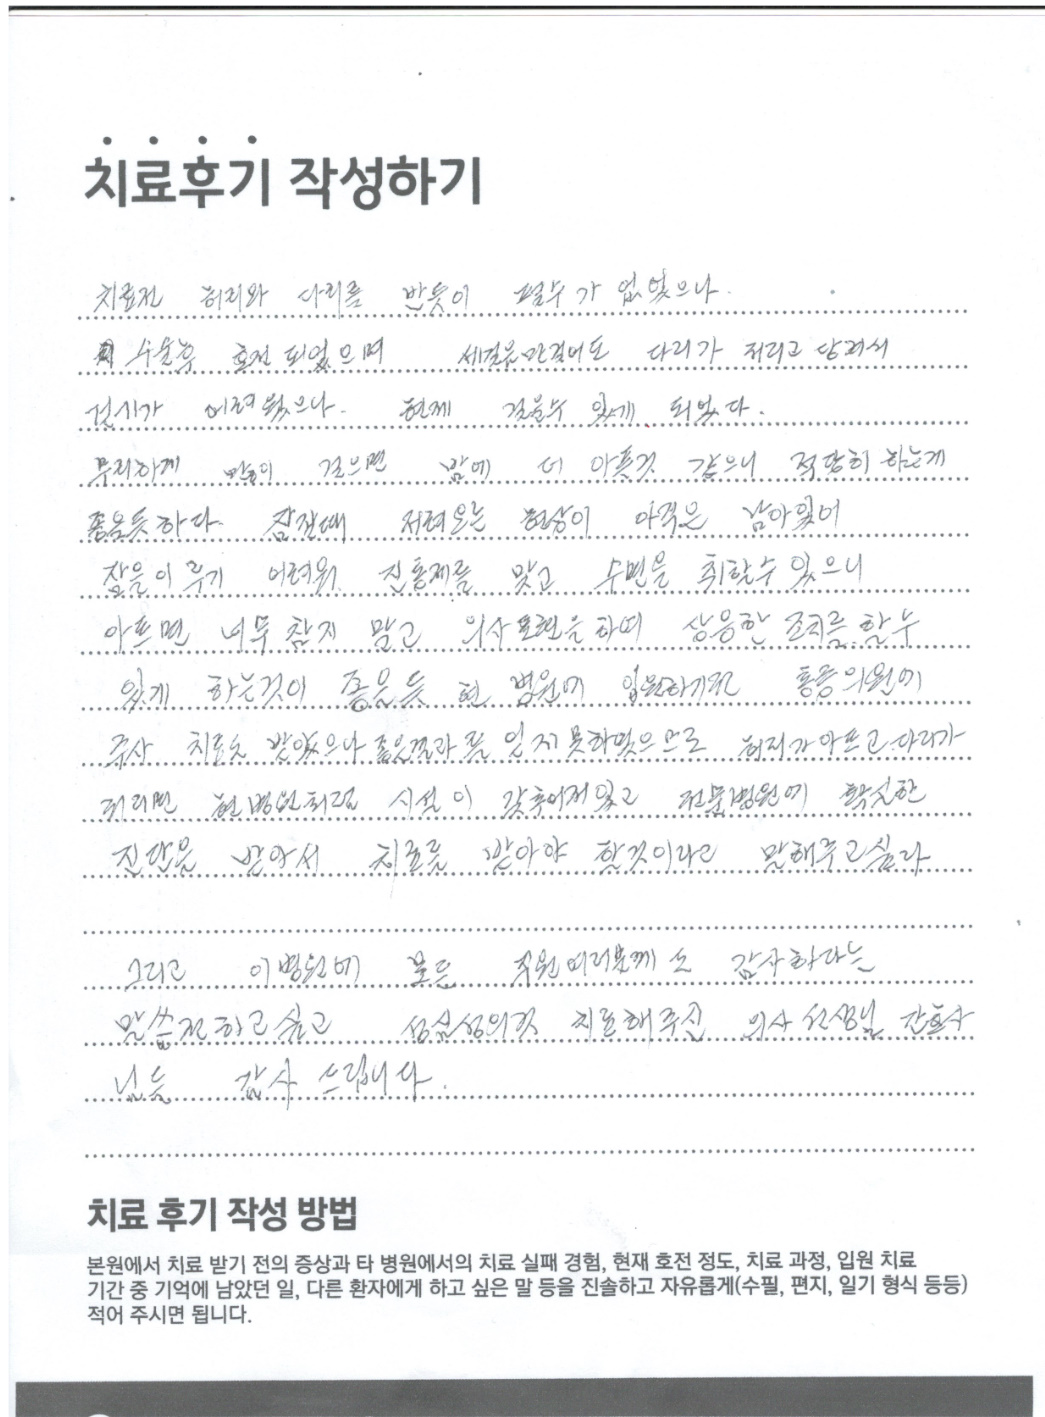 치료후기 작성하기
치료전 허리와 다리를 반듯이 펼수가 없었으나.
수술후 호전되었으며 세걸음만걸어도 다리가 저리고 당겨서
걷기가 어려웠으나. 현제 걸을수 있게 되었다.
무리하게 많이 걸으면 밤에 더 아픈것 같으니 적당히 하는게
좋을듯하다. 잠잘때 저려오는 현상이 아직은 남아있어
잠을이루기 어려워. 진통제를 맞고 수면을 취할수 있으니
아프면 너무 참지 말고 의사표현을 하며 상응한 조치를 할수
있게 하는것이 좋을듯 현 병원에 입원하기전 통증의원에
주사 치료도 받았으나 좋은결과를 얻지못하였으므로 허리가아프고 다리가
저리면 현병원처럼 시설이 갖추어져있고 전문병원에 확실한
진단을 받아서 치료를 받아야 할것이라고 말해주고싶다
그리고 이병원에 모든 직원여러분께도 감사하다는
말씀전하고싶고 성심성의것 치료해주신 의사선생님 간호사
님들 감사드립니다.
치료 후기 작성 방법
본원에서 치료 받기 전의 증상과 타 병원에서의 치료 실패 경험, 현재 호전 정도, 치료 과정, 입원 치료
기간 중 기억에 남았던 일, 다른 환자에게 하고 싶은 말 등을 진솔하고 자유롭게(수필, 편지, 일기 형식 등등)
적어 주시면 됩니다.